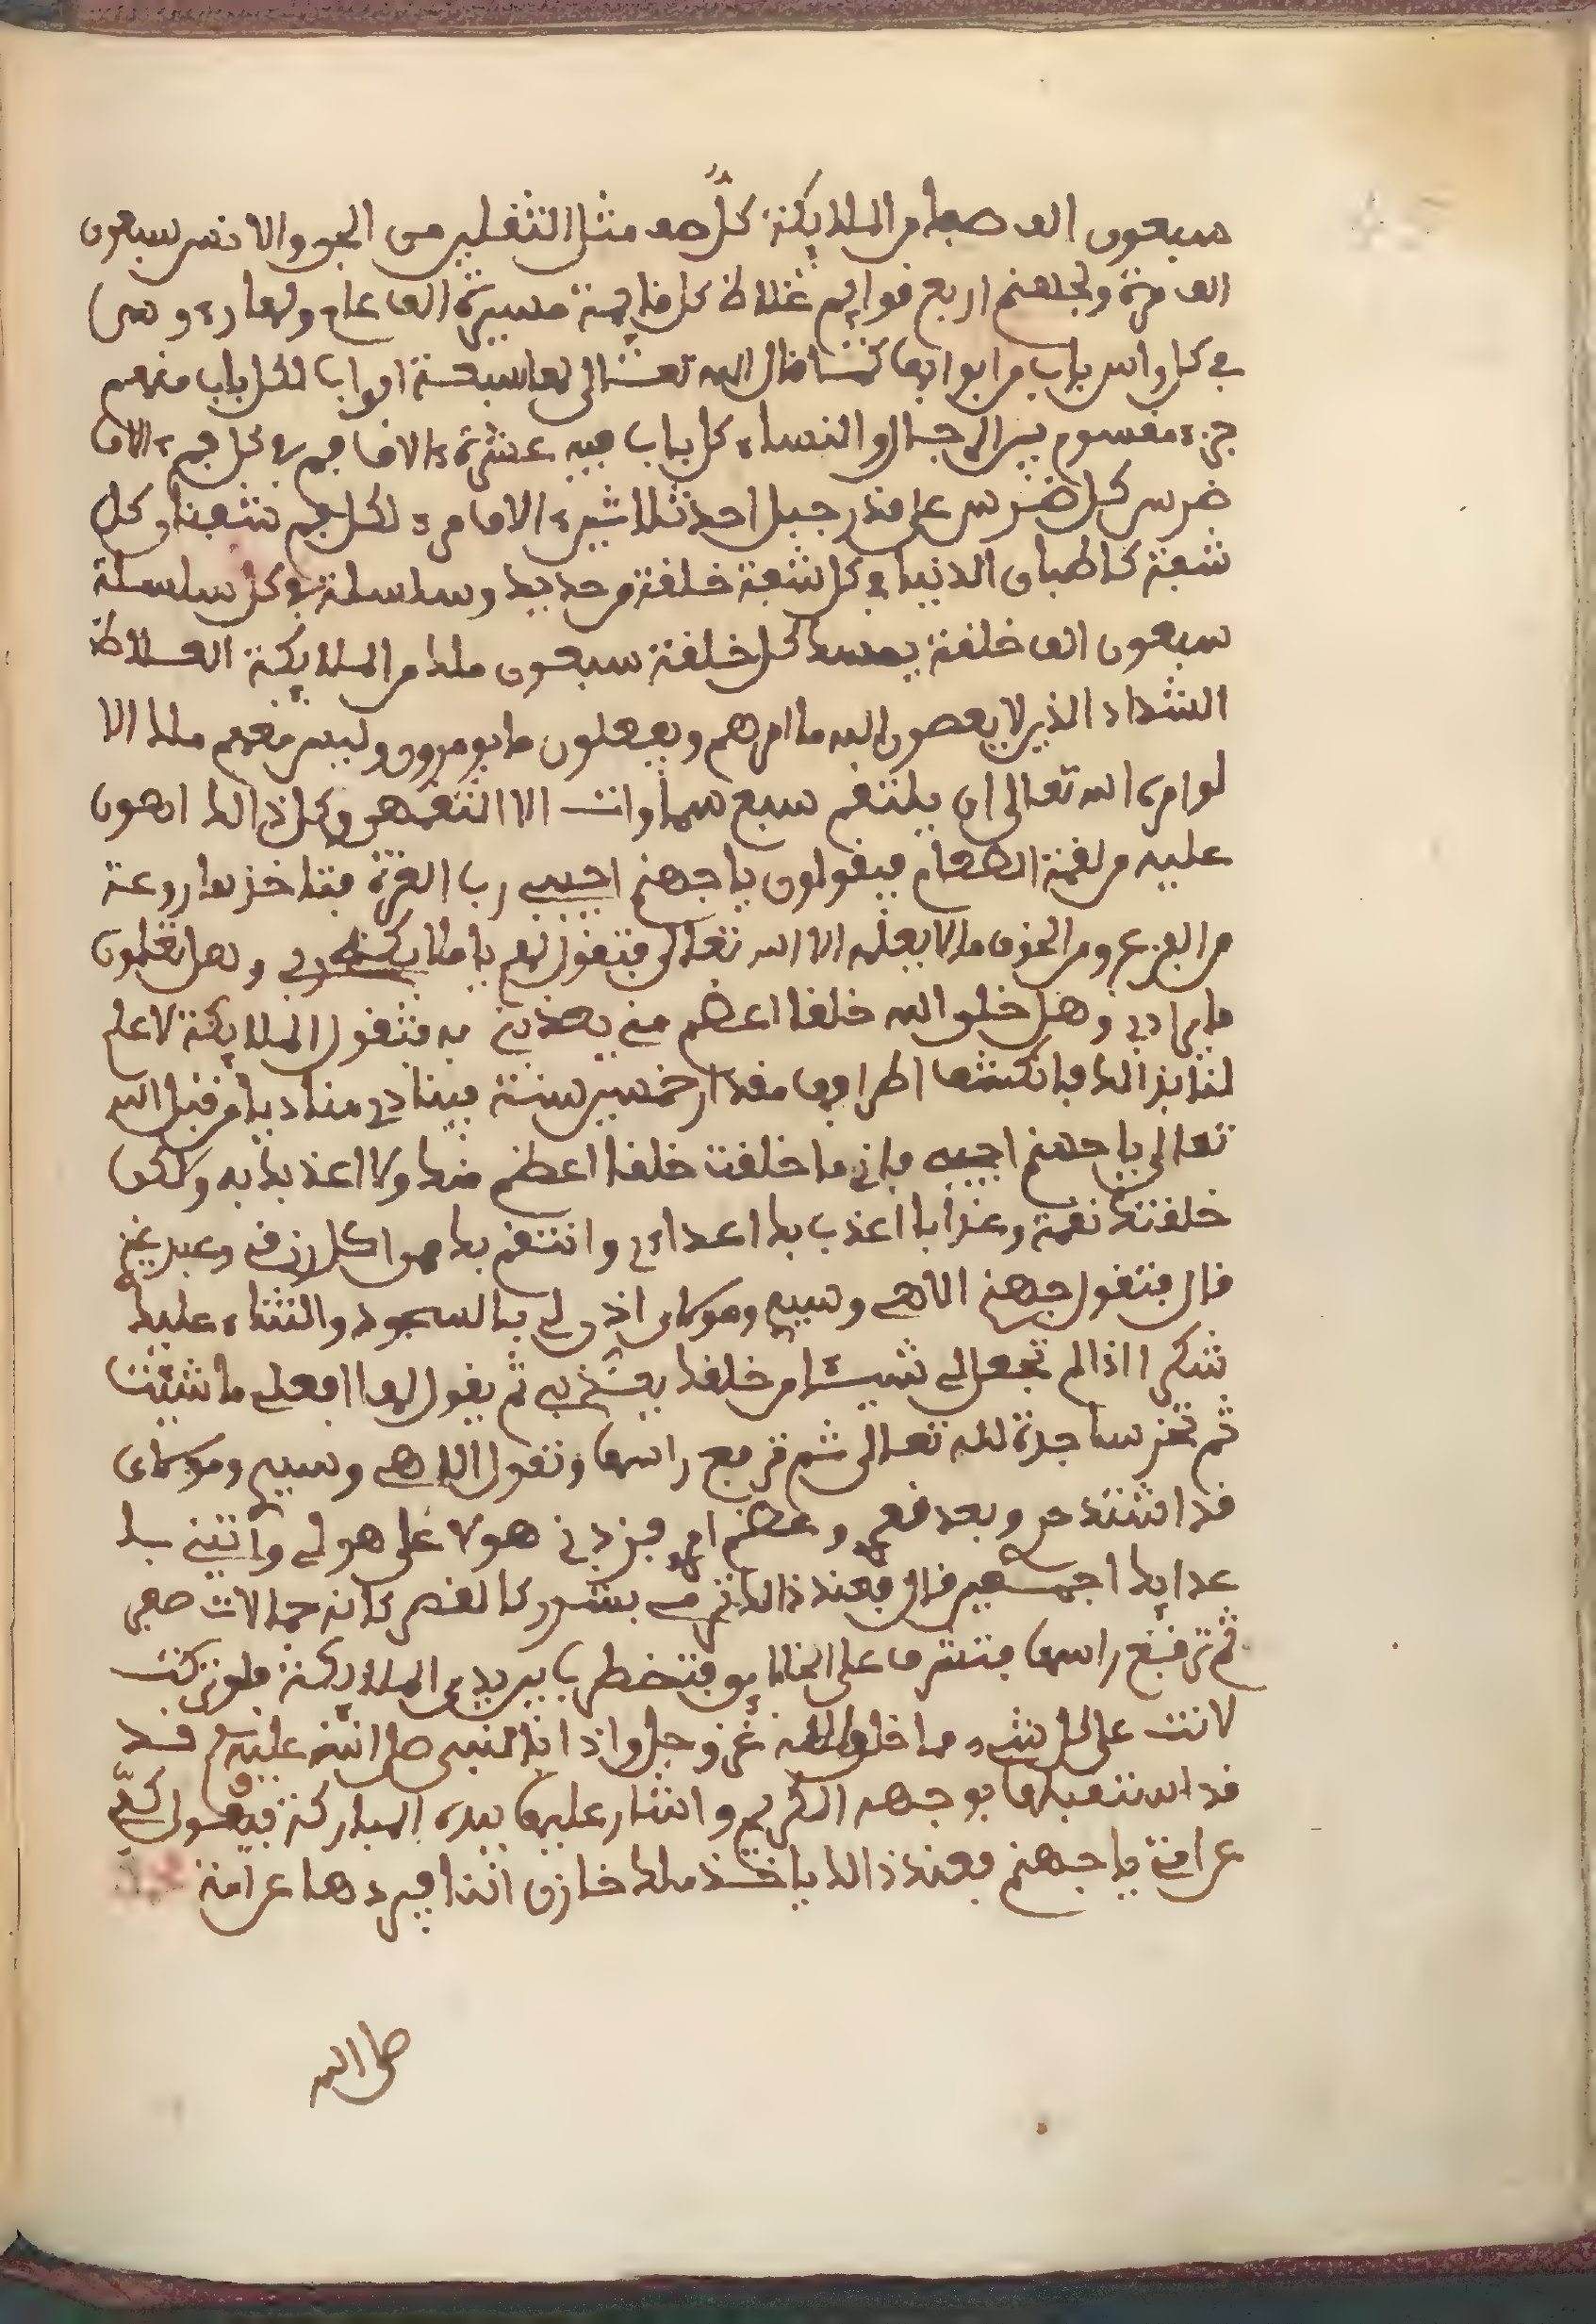 سبعون الف صفا من الملايكة كل صف مثل الثقلين من الجن والانس سبعون
الف مرة ولجهنم اربع قوايم غلاظ كل قايمة مسيرة الف عام ولها رءوس
في كل راس باب من ابوابها كما قال الله تعالى لها سبعة ابواب لكل باب منهم
جزء مقسوم بين الرجال والنساء كل باب فيه عشرة ءالاف فم في كل فم ءالاف
ضرس كل ضرس على قدر جبل احد ثلاثين ءالاف مرة لكل فم شفتا وكل
شفة كاطباق الدنيا في كل شفة حلقة من حديد وسلسلة في كل سلسلة
سبعون الف حلقة يمسك كل حلقة سبعون ملك من الملايكة الغلاظ
الشداد الذين لا يعصون الله ما امرهم ويفعلون ما يومرون وليس منهم ملك الا
لو امره الله تعالى ان يلتقم سبع سماوات الا التقمهن وكل ذالك اهون
عليه من لقمة الطعام فيقولون يا جهنم اجيبي رب العزة فتاخذها روعة
من الفزع ومن الخوف ما لا يعلمه الا الله تعالى فتقول لهم يا ملايكة ربي وهل تعلمون
ما يراد بي وهل خلق الله خلقا اعظم مني يعذبني به فتقول الملايكة لا علم
لنا بذالك فانكمشها اطرافها مقدار خمسين سنة فينادي مناديا من قبل الله
تعالى يا جهنم اجيبي فاني ما خلقت خلقا اعظم منك ولا اعذبك به ولكن
خلقتك نقمة وعذابا اعذب بك اعداءي وانتقم بك من اكل رزقي وعبد غيري
قال فتقول جهنم الاهي وسيدي ومولاي اذن لي بالسجود والثناء عليك
شكرا اذ لم تجعل لي شيئا من خلقك يعذبني ثم يقول لها افعلي ما شئت
ثم تخر ساجدة لله تعالى ثم ترفع راسها وتقول الاهي وسيدي ومولاي
قد اشتد حر وبعد قعري وعظم امري فزدني هولا على هولي واتيني ب
عدايك اجمعين قال فعند ذالك ترمي بشرر كالقصر كانه جمالات صفر
ثم ترفع راسها فتشرف على الخلايق فتخطرب بين يدي الملايكة فلو تركت
لاتت على كل شيء مما خلق الله عز وجل واذا بالنبي صلى الله عليه وسلم قد
قد استقبلها بوجهه الكريم واشار عليها بيده المباركة فيقول كفي
عن امتي يا جهنم فعند ذالك ياخذ ملك خازن النار فيردها عن امة محمد
صلى الله